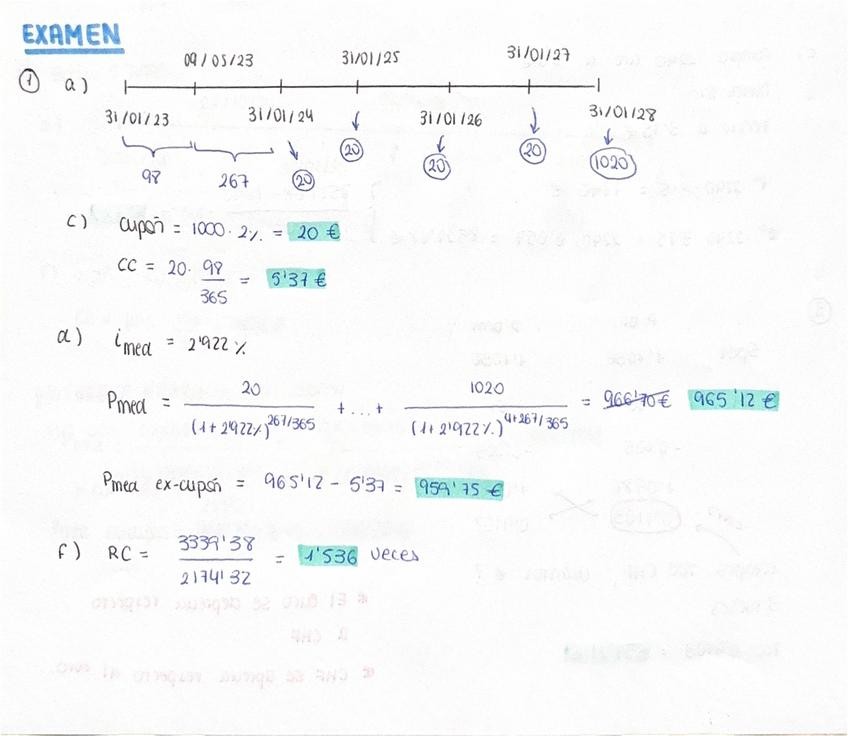 EXAMEN
09/05/23 31/01/25 31/01/27
① a)
31/01/23 31/01/24 31/01/26 31/01/28
98 267 20 20 20 20 1020
c) Cupón = 1000 · 2% = 20 €
CC = 20 · 98/365 = 5'37 €
d) i med = 2'922 %
Pmed = 20/(1+2'922%)^267/365 + ... + 1020/(1+2'922%)^4+267/365 = 966'70 € 965'12 €
Pmed ex-cupón = 965'12 - 5'37 = 959'75 €
f) RC = 3339'38/2174'32 = 1'536 veces